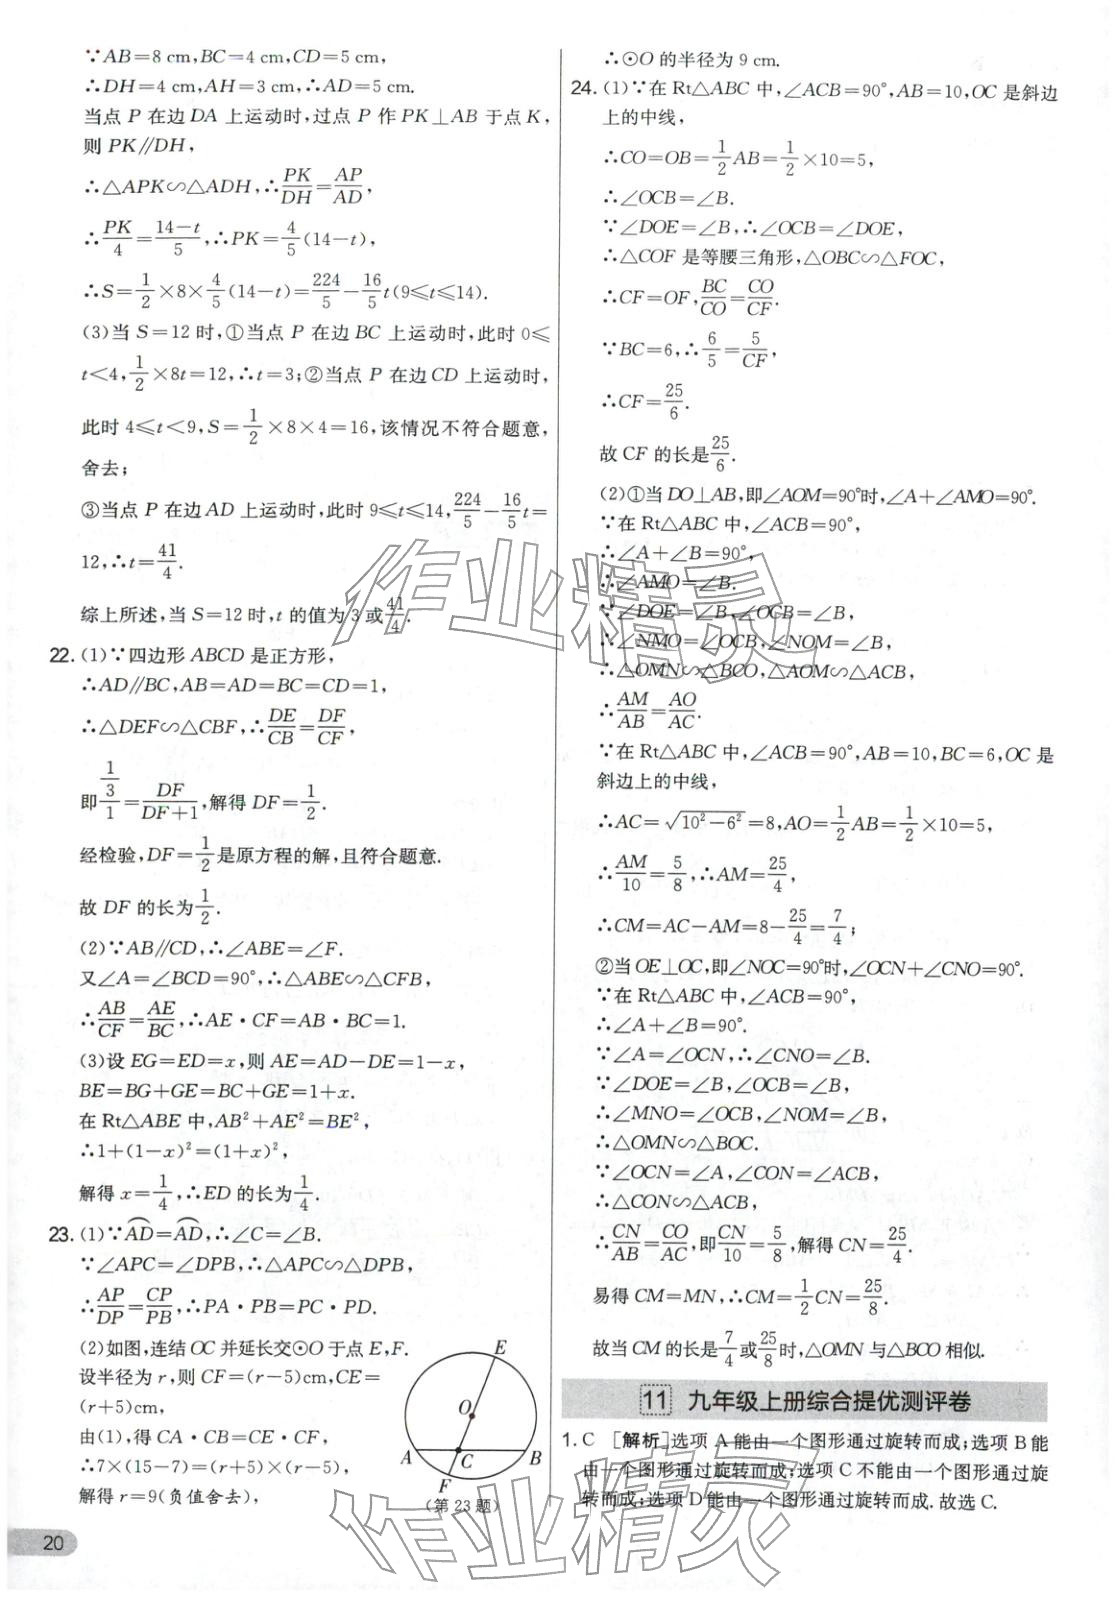 ∵AB=8 cm,BC=4 cm,CD=5 cm,
∴DH=4 cm,AH=3 cm,∴AD=5 cm.
当点 P 在边 DA 上运动时,过点 P 作 PK⊥AB 于点 K,
则 PK∥DH,
∴△APK∽△ADH,∴PK/DH=AP/AD,
∴PK/4=(14-t)/5,∴PK=4/5(14-t),
∴S=1/2×8×4/5(14-t)=224/5-16/5t(9≤t≤14).
(3)当 S=12 时,①当点 P 在边 BC 上运动时,此时 0≤
t<4,1/2×8t=12,∴t=3;②当点 P 在边 CD 上运动时,
此时 4≤t<9,S=1/2×8×4=16,该情况不符合题意,
舍去;
③当点 P 在边 AD 上运动时,此时 9≤t≤14,224/5-16/5t=
12,∴t=41/4.
综上所述,当 S=12 时,t 的值为 3 或41/4.
22. (1)∵四边形 ABCD 是正方形,
∴AD∥BC,AB=AD=BC=CD=1,
∴△DEF∽△CBF,∴DE/CB=DF/CF,
即(1/3)/1=DF/(DF+1),解得 DF=1/2.
经检验,DF=1/2是原方程的解,且符合题意.
故 DF 的长为1/2.
(2)∵AB∥CD,∴∠ABE=∠F.
又∠A=∠BCD=90°,∴△ABE∽△CFB,
∴AB/CF=AE/BC,∴AE·CF=AB·BC=1.
(3)设 EG=ED=x,则 AE=AD-DE=1-x,
BE=BG+GE=BC+GE=1+x.
在 Rt△ABE 中,AB²+AE²=BE²,
∴1+(1-x)²=(1+x)²,
解得 x=1/4,∴ED 的长为1/4.
23. (1)∵AD⌒=AD⌒,∴∠C=∠B.
∵∠APC=∠DPB,∴△APC∽△DPB,
∴AP/DP=CP/PB,∴PA·PB=PC·PD.
(2)如图,连结 OC 并延长交⊙O 于点 E,F.
设半径为 r,则 CF=(r-5)cm,CE=
(r+5)cm,
由(1),得 CA·CB=CE·CF,
∴7×(15-7)=(r+5)×(r-5),
解得 r=9(负值舍去),
E
O
A
C
B
F
(第 23 题)
20
∴⊙O 的半径为 9 cm.
24. (1)∵在 Rt△ABC 中,∠ACB=90°,AB=10,OC 是斜边
上的中线,
∴CO=OB=1/2AB=1/2×10=5,
∴∠OCB=∠B.
∵∠DOE=∠B,∴∠OCB=∠DOE,
∴△COF 是等腰三角形,△OBC∽△FOC,
∴CF=OF,BC/CO=CO/CF.
∵BC=6,∴6/5=5/CF,
∴CF=25/6.
故 CF 的长是25/6.
(2)①当 DO⊥AB,即∠AOM=90°时,∠A+∠AMO=90°.
∵在 Rt△ABC 中,∠ACB=90°,
∴∠A+∠B=90°,
∴∠AMO=∠B.
∵∠DOE=∠B,∠OCB=∠B,
∴∠NMO=∠OCB,∠NOM=∠B,
∴△OMN∽△BCO,△OAM∽△CAB,
∴AM/AB=AO/AC.
∵在 Rt△ABC 中,∠ACB=90°,AB=10,BC=6,OC 是
斜边上的中线,
∴AC=√(10²-6²)=8,AO=1/2AB=1/2×10=5,
∴AM/10=5/8,∴AM=25/4,
∴CM=AC-AM=8-25/4=7/4;
②当 OE⊥OC,即∠NOC=90°时,∠OCN+∠CNO=90°.
∵在 Rt△ABC 中,∠ACB=90°,
∴∠A+∠B=90°.
∵∠A=∠OCN,∴∠CNO=∠B.
∵∠DOE=∠B,∠OCB=∠B,
∴∠MNO=∠OCB,∠NOM=∠B,
∴△OMN∽△BOC.
∵∠OCN=∠A,∠CON=∠ACB,
∴△CON∽△ACB,
∴CN/AB=CO/AC,即CN/10=5/8,解得 CN=25/4.
易得 CM=MN,∴CM=1/2CN=25/8.
故当 CM 的长是7/4或25/8时,△OMN 与△BCO 相似.
11 九年级上册综合提优测评卷
1. C [解析]选项 A 能由一个图形通过旋转而成;选项 B 能
由一个图形通过旋转而成;选项 C 不能由一个图形通过旋
转而成;选项 D 能由一个图形通过旋转而成.故选 C.
作业精灵
作业精灵